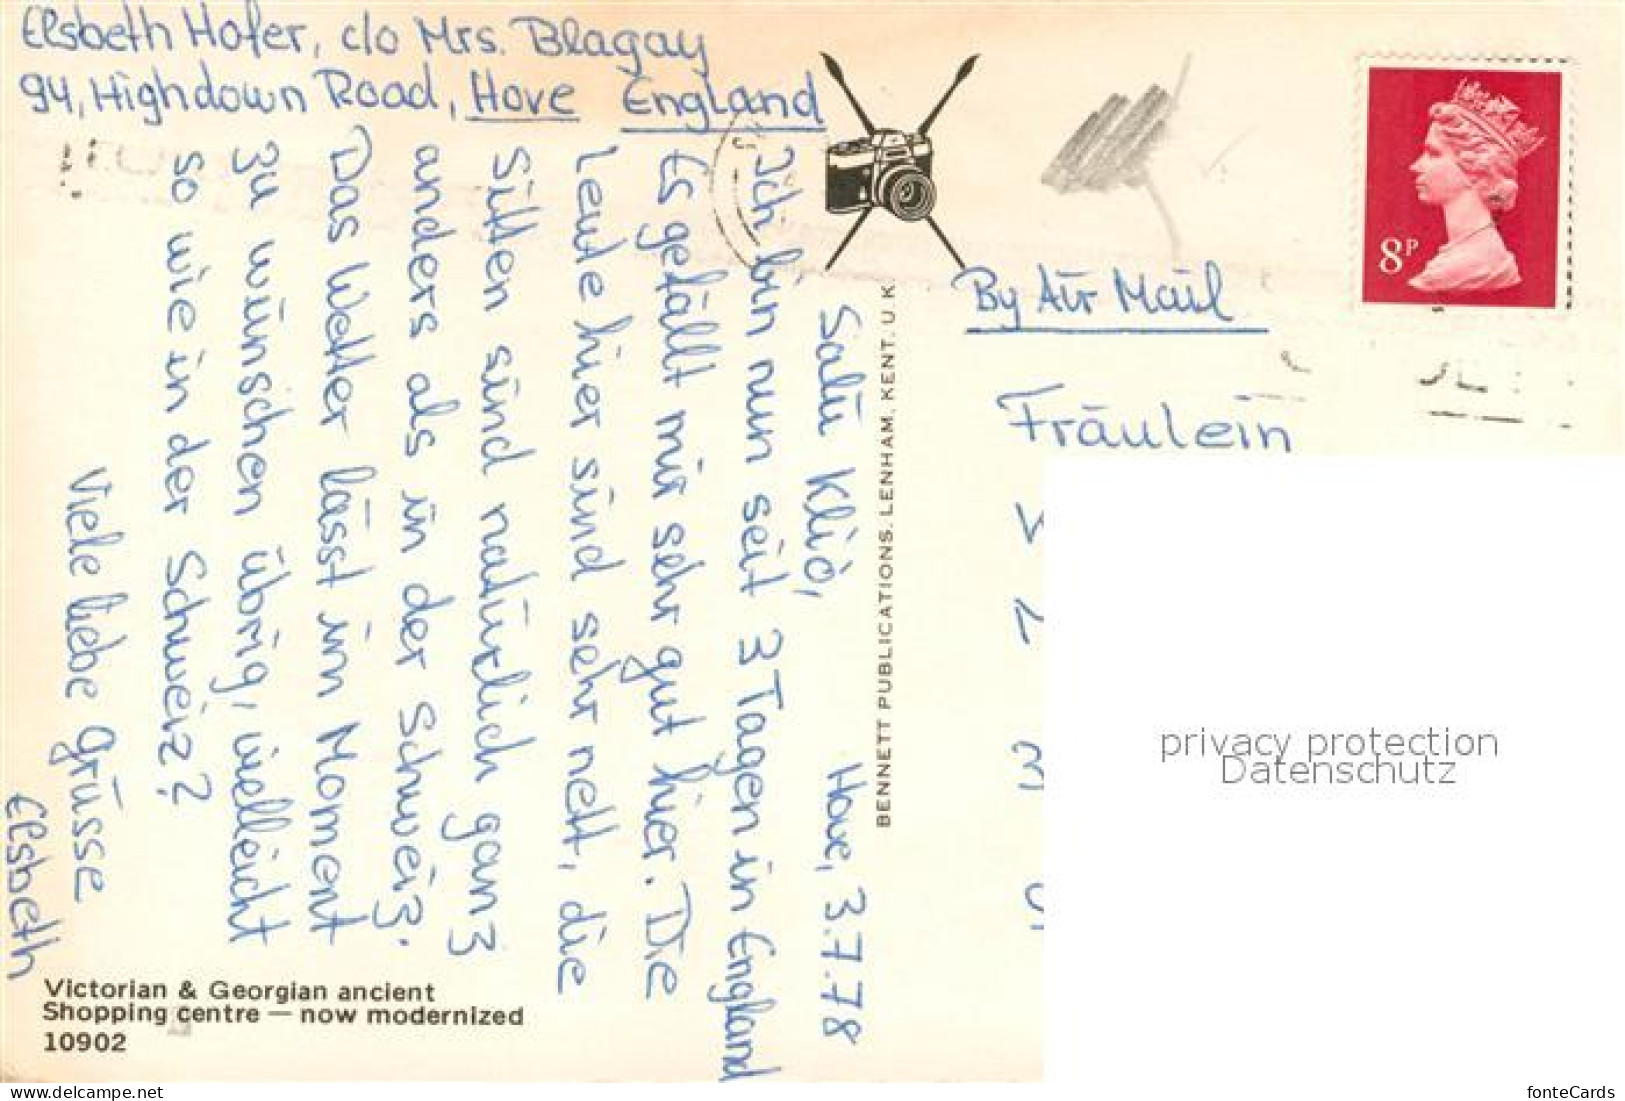 Elsbeth Hofer, c/o Mrs. Blagay
94, Highdown Road, Hove England
Salü Kliò, Hove, 3.7.78
Ich bin nun seit 3 Tagen in England
Es gefällt mir sehr gut hier. Die
Leute hier sind sehr nett, die
Sitten sind natürlich ganz
anders als in der Schweiz.
Das Wetter lässt im Moment
zu wünschen übrig, vielleicht
so wie in der Schweiz?
Viele liebe Grüsse
Elsbeth
Victorian & Georgian ancient
Shopping centre — now modernized
10902
BENNETT PUBLICATIONS. LENHAM. KENT. U.K
8P
By Air Mail
Fräulein
privacy protection
Datenschutz
delcampe.net
fonteCards